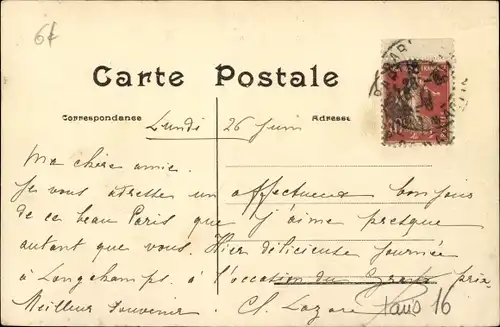 6f
Carte Postale
Correspondance
Adresse
Lundi 26 Juin
Ma chère amie.
Je vous adresse un affectueux bonjour
de ce beau Paris que j'aime presque
autant que vous. Hier délicieuse journée
à Longchamps. à l'occasion du Grand prix
Meilleur souvenir. Cl. Lazare
Paris 16